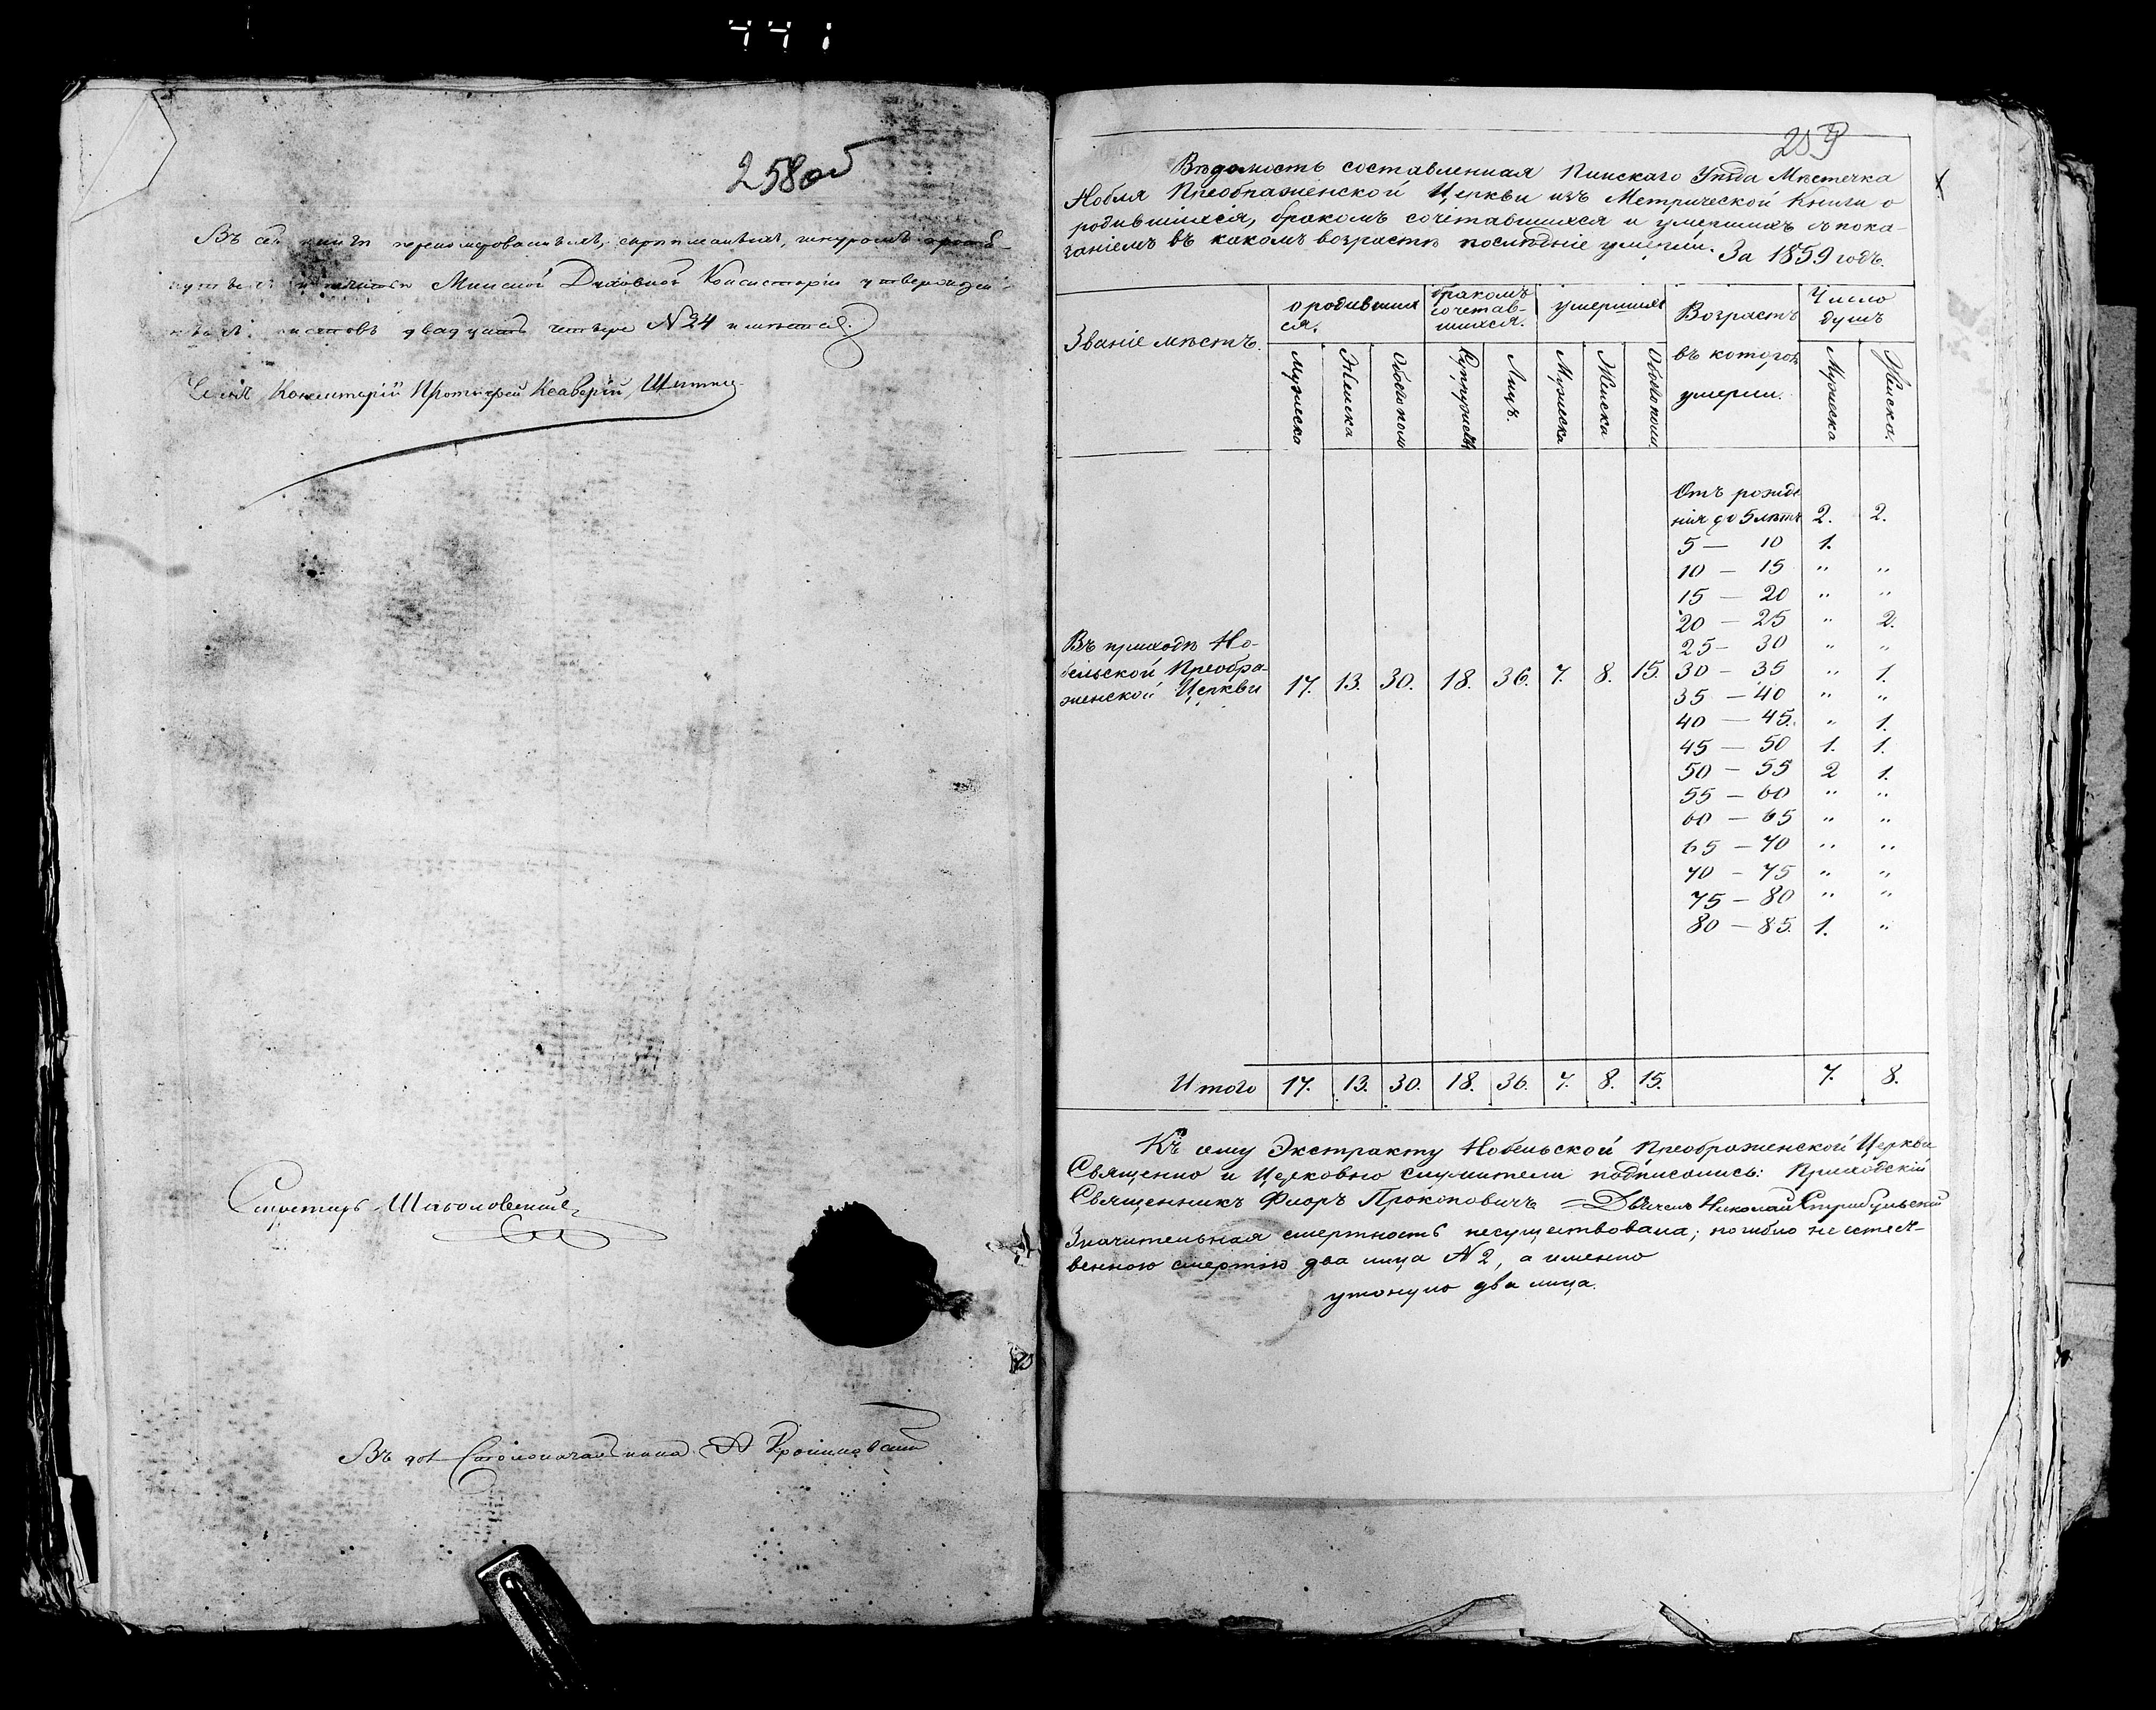 441
258об
Въ сей книгѣ перенумерованныхъ, скрѣпленныхъ, шнуромъ
и печатью Минской Духовной Консисторіи утвержден-
ныхъ листовъ двадцать четыре №24 имѣется.
Членъ Консисторіи Протоіерей
Секретарь
Въ дол. Столоначальника
259
Вѣдомость составленная Пинскаго Уѣзда Мѣстечка
Нобля Преображенской Церкви изъ Метрической Книги о
родившихся, бракомъ сочетавшихся и умершихъ съ пока-
заніемъ въ какомъ возрастѣ послѣдніе умерли. За 1859 годъ.
Званіе мѣстъ. о родивших ся. бракомъ сочетав- шихся. умершихъ Возрастъ въ которомъ умерли. Число душъ
Мужеска Женска Обоего пола Супружествъ Лицъ. Мужеска Женска Обоего пола Мужеска Женска.
Отъ рожде
нія до 5 лѣтъ 2. 2.
5 — 10 1.
10 — 15 " "
15 — 20 " "
20 — 25 " 2.
25 — 30 " "
Въ приходѣ Но-
бельской Преобра-
женской Церкви 17. 13. 30. 18. 36. 7. 8. 15. 30 — 35 " 1.
35 — 40 " "
40 — 45. " 1.
45 — 50 1. 1.
50 — 55 2 1.
55 — 60 " "
60 — 65 " "
65 — 70 " "
70 — 75 " "
75 — 80 " "
80 — 85. 1. "
Итого 17. 13. 30. 18. 36. 7. 8. 15. 7. 8.
Къ сему Экстракту Нобельской Преображенской Церкви
Священно и Церковно служители подписались: Приходскій
Священникъ Флоръ Прокоповичъ = Дьячекъ Николай Стрибульскій
Значительная смертность несуществовала; погибло неестест-
венною смертію два лица №2, а именно
утонуло два лица.